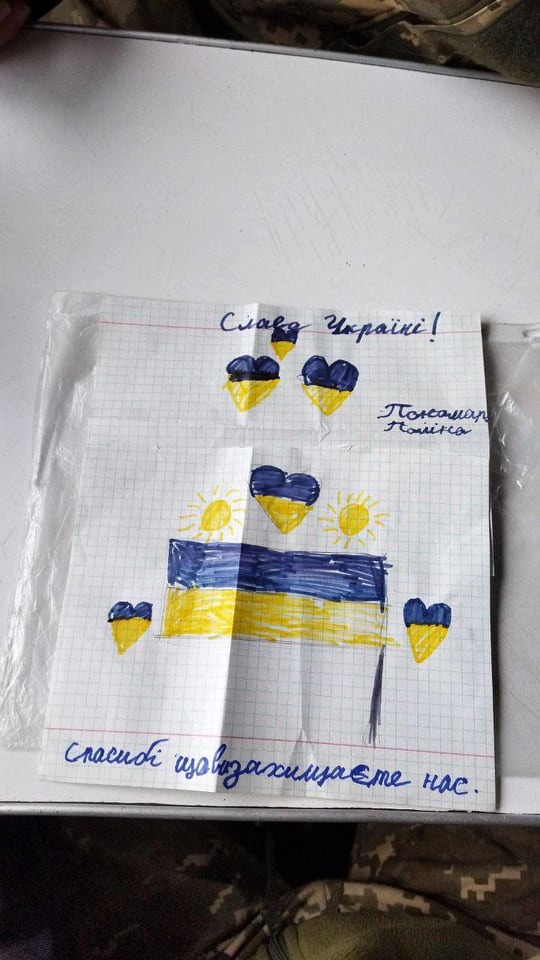 Слава Україні!
Пономар
Поліна
Спасибі щовизахищаєте нас.